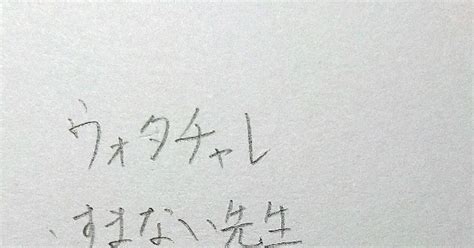 ウォタチャレ
、すまない先生